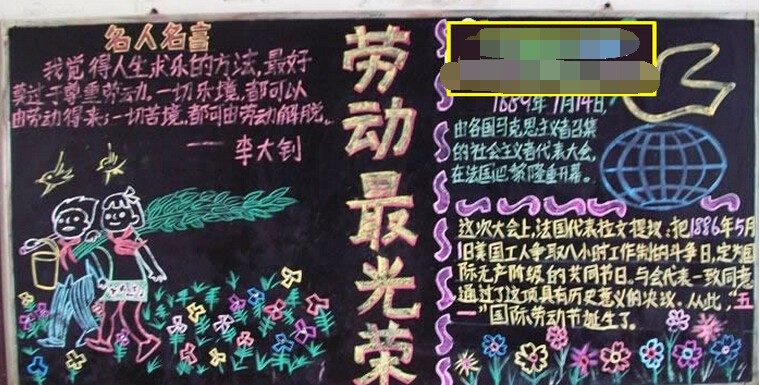 名人名言
我觉得人生求乐的方法，最好
莫过于尊重劳动。一切乐境，都可以
由劳动得来；一切苦境，都可由劳动解脱。
——李大钊
劳动最光荣
1889年7月14日，
由各国马克思主义者召集
的社会主义者代表大会，
在法国巴黎隆重开幕。
这次大会上，法国代表拉文提议：把1886年5月
1日美国工人争取八小时工作制的斗争日，定为国
际无产阶级的共同节日。与会代表一致同意，
通过了这项具有历史意义的决议。从此，“五
一”国际劳动节诞生了。